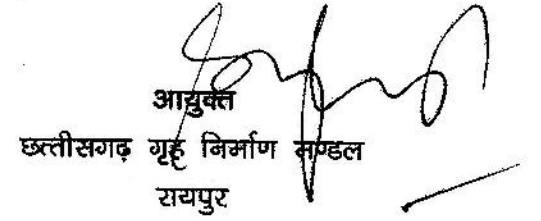 आयुक्त
छत्तीसगढ़ गृह निर्माण मण्डल
रायपुर